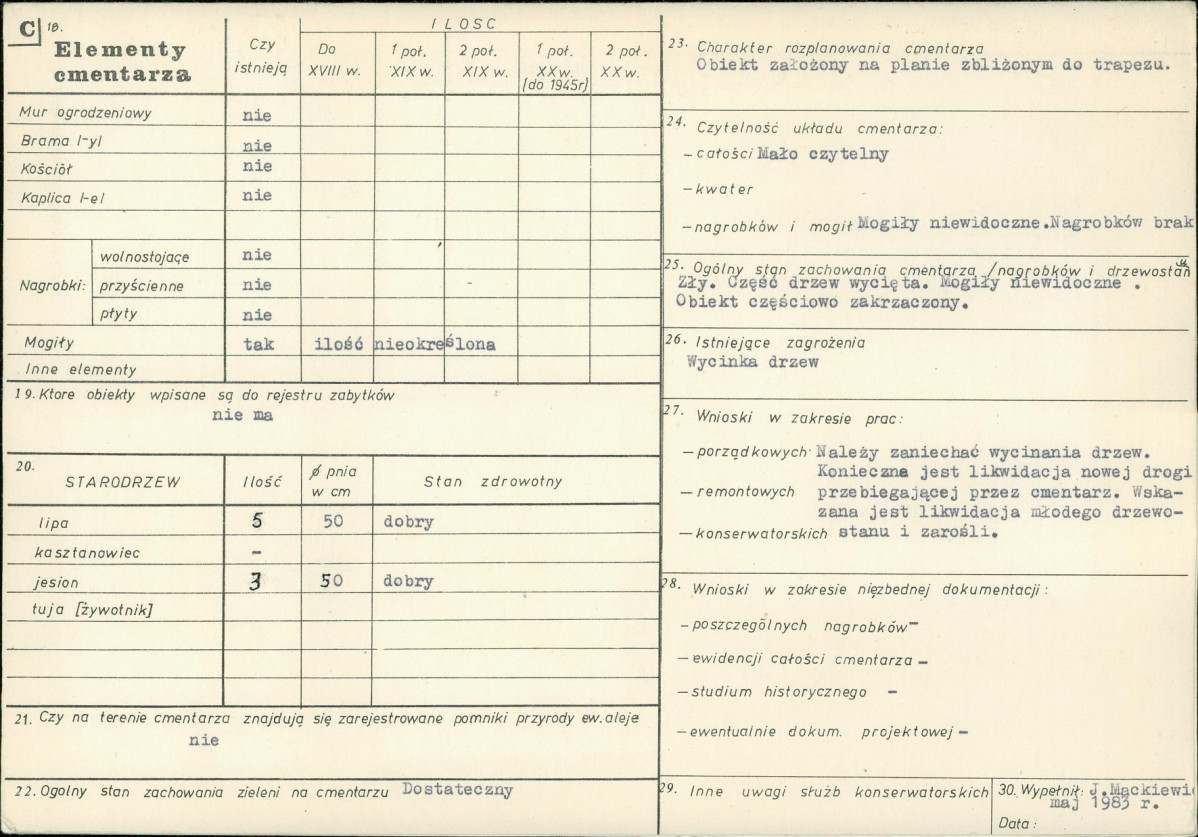 C 18.
Elementy cmentarza
Czy istnieją
ILOSC
Do XVIII w.
1 poł. XIX w.
2 poł. XIX w.
1 poł. XX w. [do 1945r]
2 poł. XX w.
Mur ogrodzeniowy nie
Brama /-y/ nie
Kościół nie
Kaplica /-e/ nie
Nagrobki:
wolnostojące nie
przyścienne nie
płyty nie
Mogiły tak ilość nieokreślona
Inne elementy
19. Ktore obiekty wpisane są do rejestru zabytków
nie ma
20. STARODRZEW Ilość ø pnia w cm Stan zdrowotny
lipa 5 50 dobry
kasztanowiec -
jesion 3 50 dobry
tuja [żywotnik]
21. Czy na terenie cmentarza znajdują się zarejestrowane pomniki przyrody ew. aleje
nie
22. Ogolny stan zachowania zieleni na cmentarzu Dostateczny
23. Charakter rozplanowania cmentarza
Obiekt założony na planie zbliżonym do trapezu.
24. Czytelność układu cmentarza:
- całości Mało czytelny
- kwater
- nagrobków i mogił Mogiły niewidoczne.Nagrobków brak
25. Ogólny stan zachowania cmentarza /nagrobków i drzewostanu
Zły. Część drzew wycięta. Mogiły niewidoczne .
Obiekt częściowo zakrzaczony.
26. Istniejące zagrożenia
Wycinka drzew
27. Wnioski w zakresie prac:
- porządkowych Należy zaniechać wycinania drzew.
Konieczna jest likwidacja nowej drogi
- remontowych przebiegającej przez cmentarz. Wska-
zana jest likwidacja młodego drzewo-
- konserwatorskich stanu i zarośli.
28. Wnioski w zakresie niezbędnej dokumentacji:
- poszczególnych nagrobków -
- ewidencji całości cmentarza -
- studium historycznego -
- ewentualnie dokum. projektowej -
29. Inne uwagi służb konserwatorskich
30. Wypełnił: J.Mackiewi
maj 1983 r.
Data: